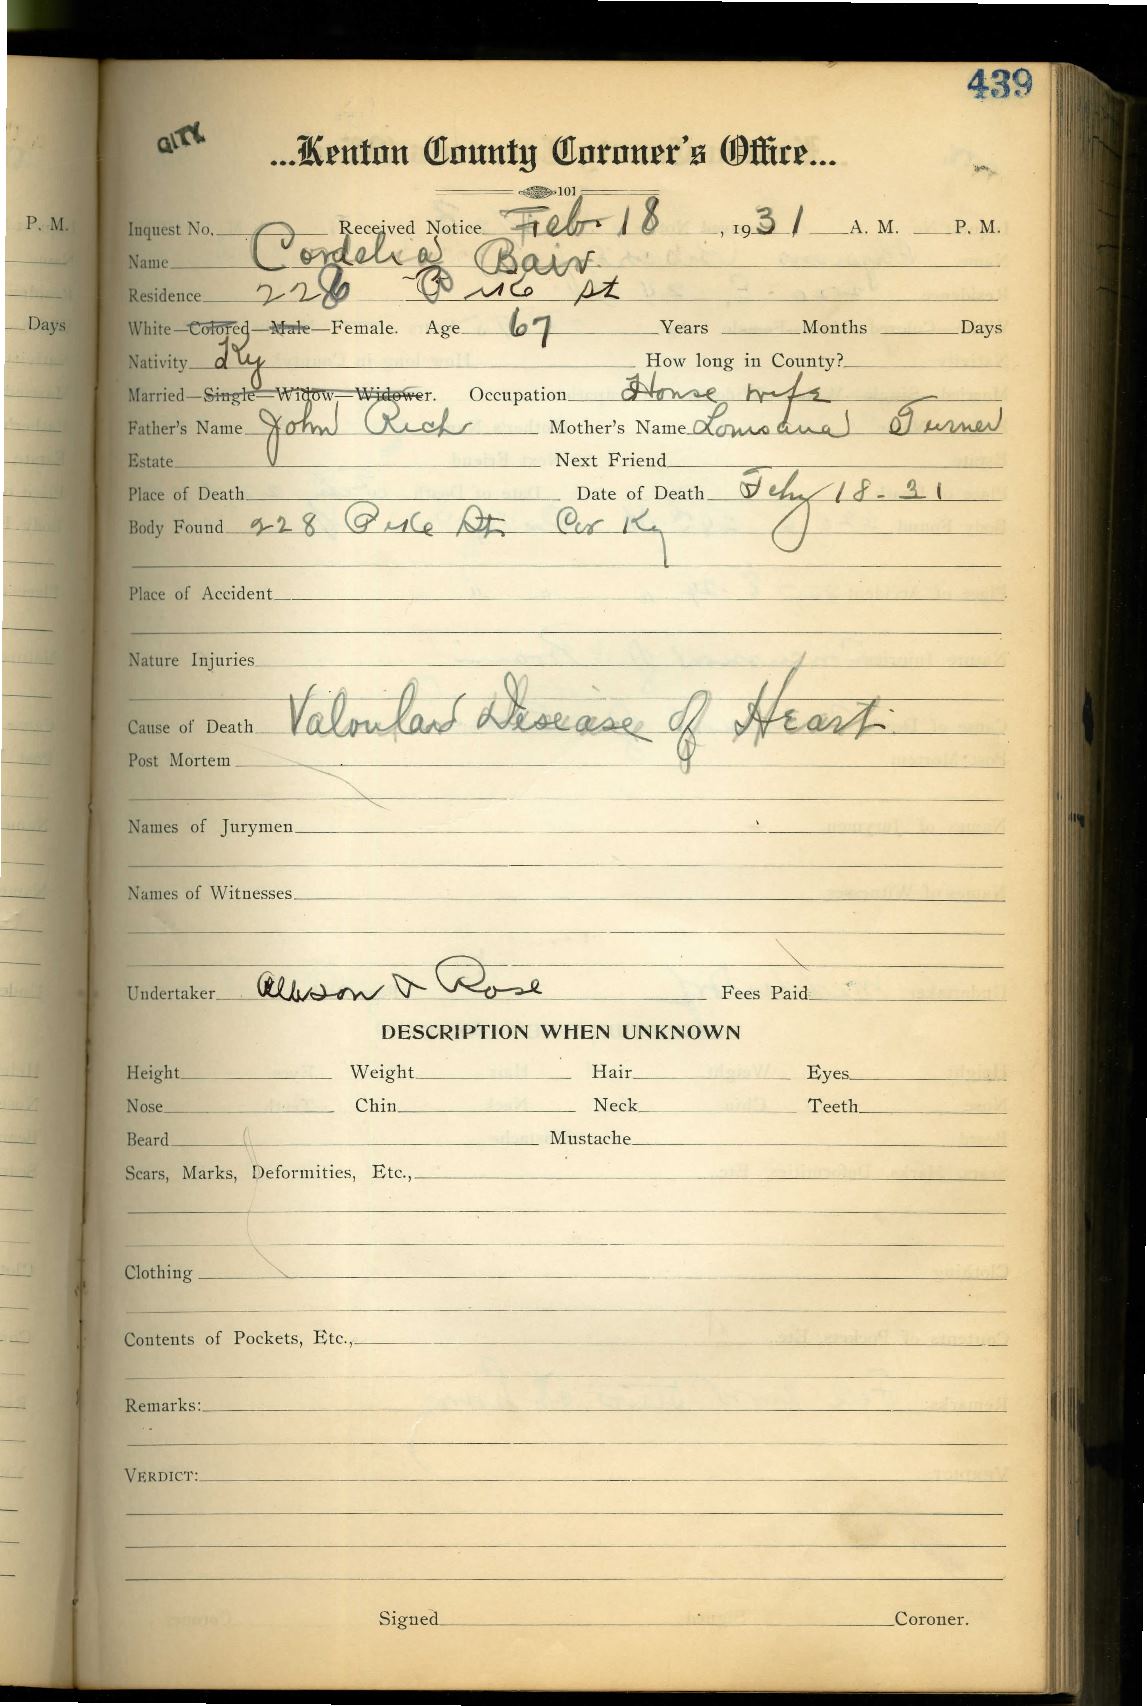 439
CITY
...Kenton County Coroner's Office...
101
P. M.
Inquest No. Received Notice Feb. 18, 1931 A. M. P. M.
Name Cordelia Bair
Residence 228 Pike St
Days
White—Colored—Male—Female. Age 67 Years Months Days
Nativity Ky How long in County?
Married—Single—Widow—Widower. Occupation House wife
Father's Name John Rich Mother's Name Louisana Turner
Estate Next Friend
Place of Death Date of Death Feby 18-31
Body Found 228 Pike St Cov Ky
Place of Accident
Nature Injuries
Cause of Death Valvular Disease of Heart.
Post Mortem
Names of Jurymen
Names of Witnesses
Undertaker Allison & Rose Fees Paid
DESCRIPTION WHEN UNKNOWN
Height Weight Hair Eyes
Nose Chin Neck Teeth
Beard Mustache
Scars, Marks, Deformities, Etc.,
Clothing
Contents of Pockets, Etc.,
Remarks:
VERDICT:
Signed Coroner.